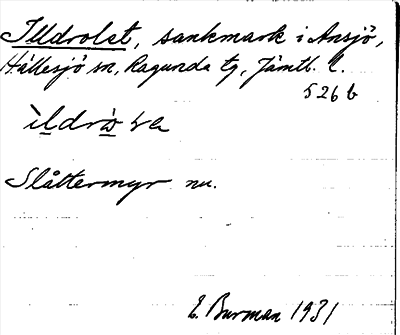 Illdrolet, sankmark i Ansjö,
Hällesjö sn, Ragunda tg, Jämtl. l.
526 b
Slåttermyr nu.
E. Burman 1931